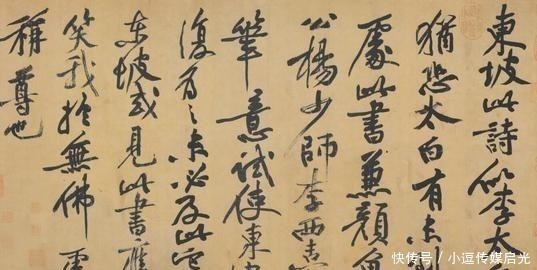 東坡此詩似李太
猶恐太白有未到
處此書兼顏魯
公楊少師李西臺
筆意試使東
復為之未必及此
東坡或見此書應
笑我於無佛處
稱尊也
快传号 / 小逗传媒启光